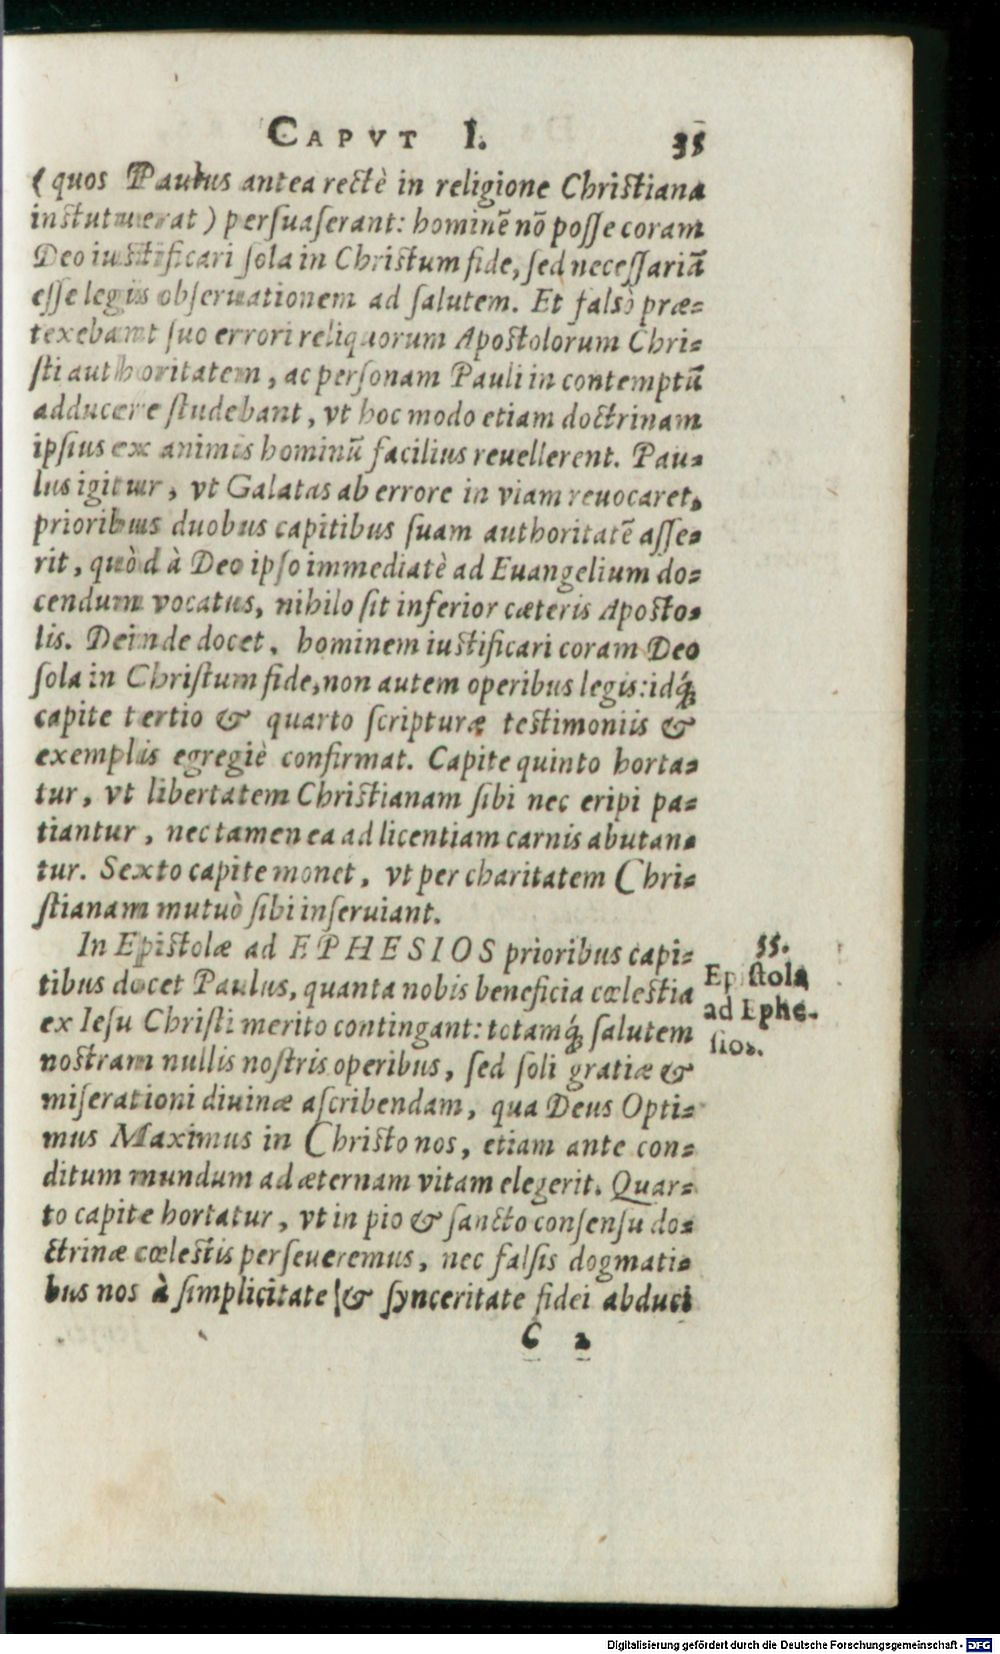 CAPVT I. 35
(quos Paulus antea rectè in religione Christiana
instituerat) persuaserant: hominẽ nõ posse coram
Deo iustificari sola in Christum fide, sed necessariã
esse legis obseruationem ad salutem. Et falsò præ-
texebant suo errori reliquorum Apostolorum Chri-
sti authoritatem, ac personam Pauli in contemptũ
adducere studebant, vt hoc modo etiam doctrinam
ipsius ex animis hominũ facilius reuellerent. Pau-
lus igitur, vt Galatas ab errore in viam reuocaret,
prioribus duobus capitibus suam authoritatẽ asse-
rit, quòd à Deo ipso immediatè ad Euangelium do-
cendum vocatus, nihilo sit inferior cæteris Aposto-
lis. Deinde docet, hominem iustificari coram Deo
sola in Christum fide, non autem operibus legis: idq́;
capite tertio & quarto scripturæ testimoniis &
exemplis egregiè confirmat. Capite quinto horta-
tur, vt libertatem Christianam sibi nec eripi pa-
tiantur, nec tamen ea ad licentiam carnis abutan-
tur. Sexto capite monet, vt per charitatem Chri-
stianam mutuò sibi inseruiant.
In Epistolæ ad EPHESIOS prioribus capi-
tibus docet Paulus, quanta nobis beneficia cœlestia
ex Iesu Christi merito contingant: totamq́; salutem
nostram nullis nostris operibus, sed soli gratiæ &
miserationi diuinæ ascribendam, qua Deus Opti-
mus Maximus in Christo nos, etiam ante con-
ditum mundum ad æternam vitam elegerit. Quar-
to capite hortatur, vt in pio & sancto consensu do-
ctrinæ cœlestis perseueremus, nec falsis dogmati-
bus nos à simplicitate & synceritate fidei abduci
55.
Epistola
ad Ephe-
sios.
C 2
Digitalisierung gefördert durch die Deutsche Forschungsgemeinschaft - DFG